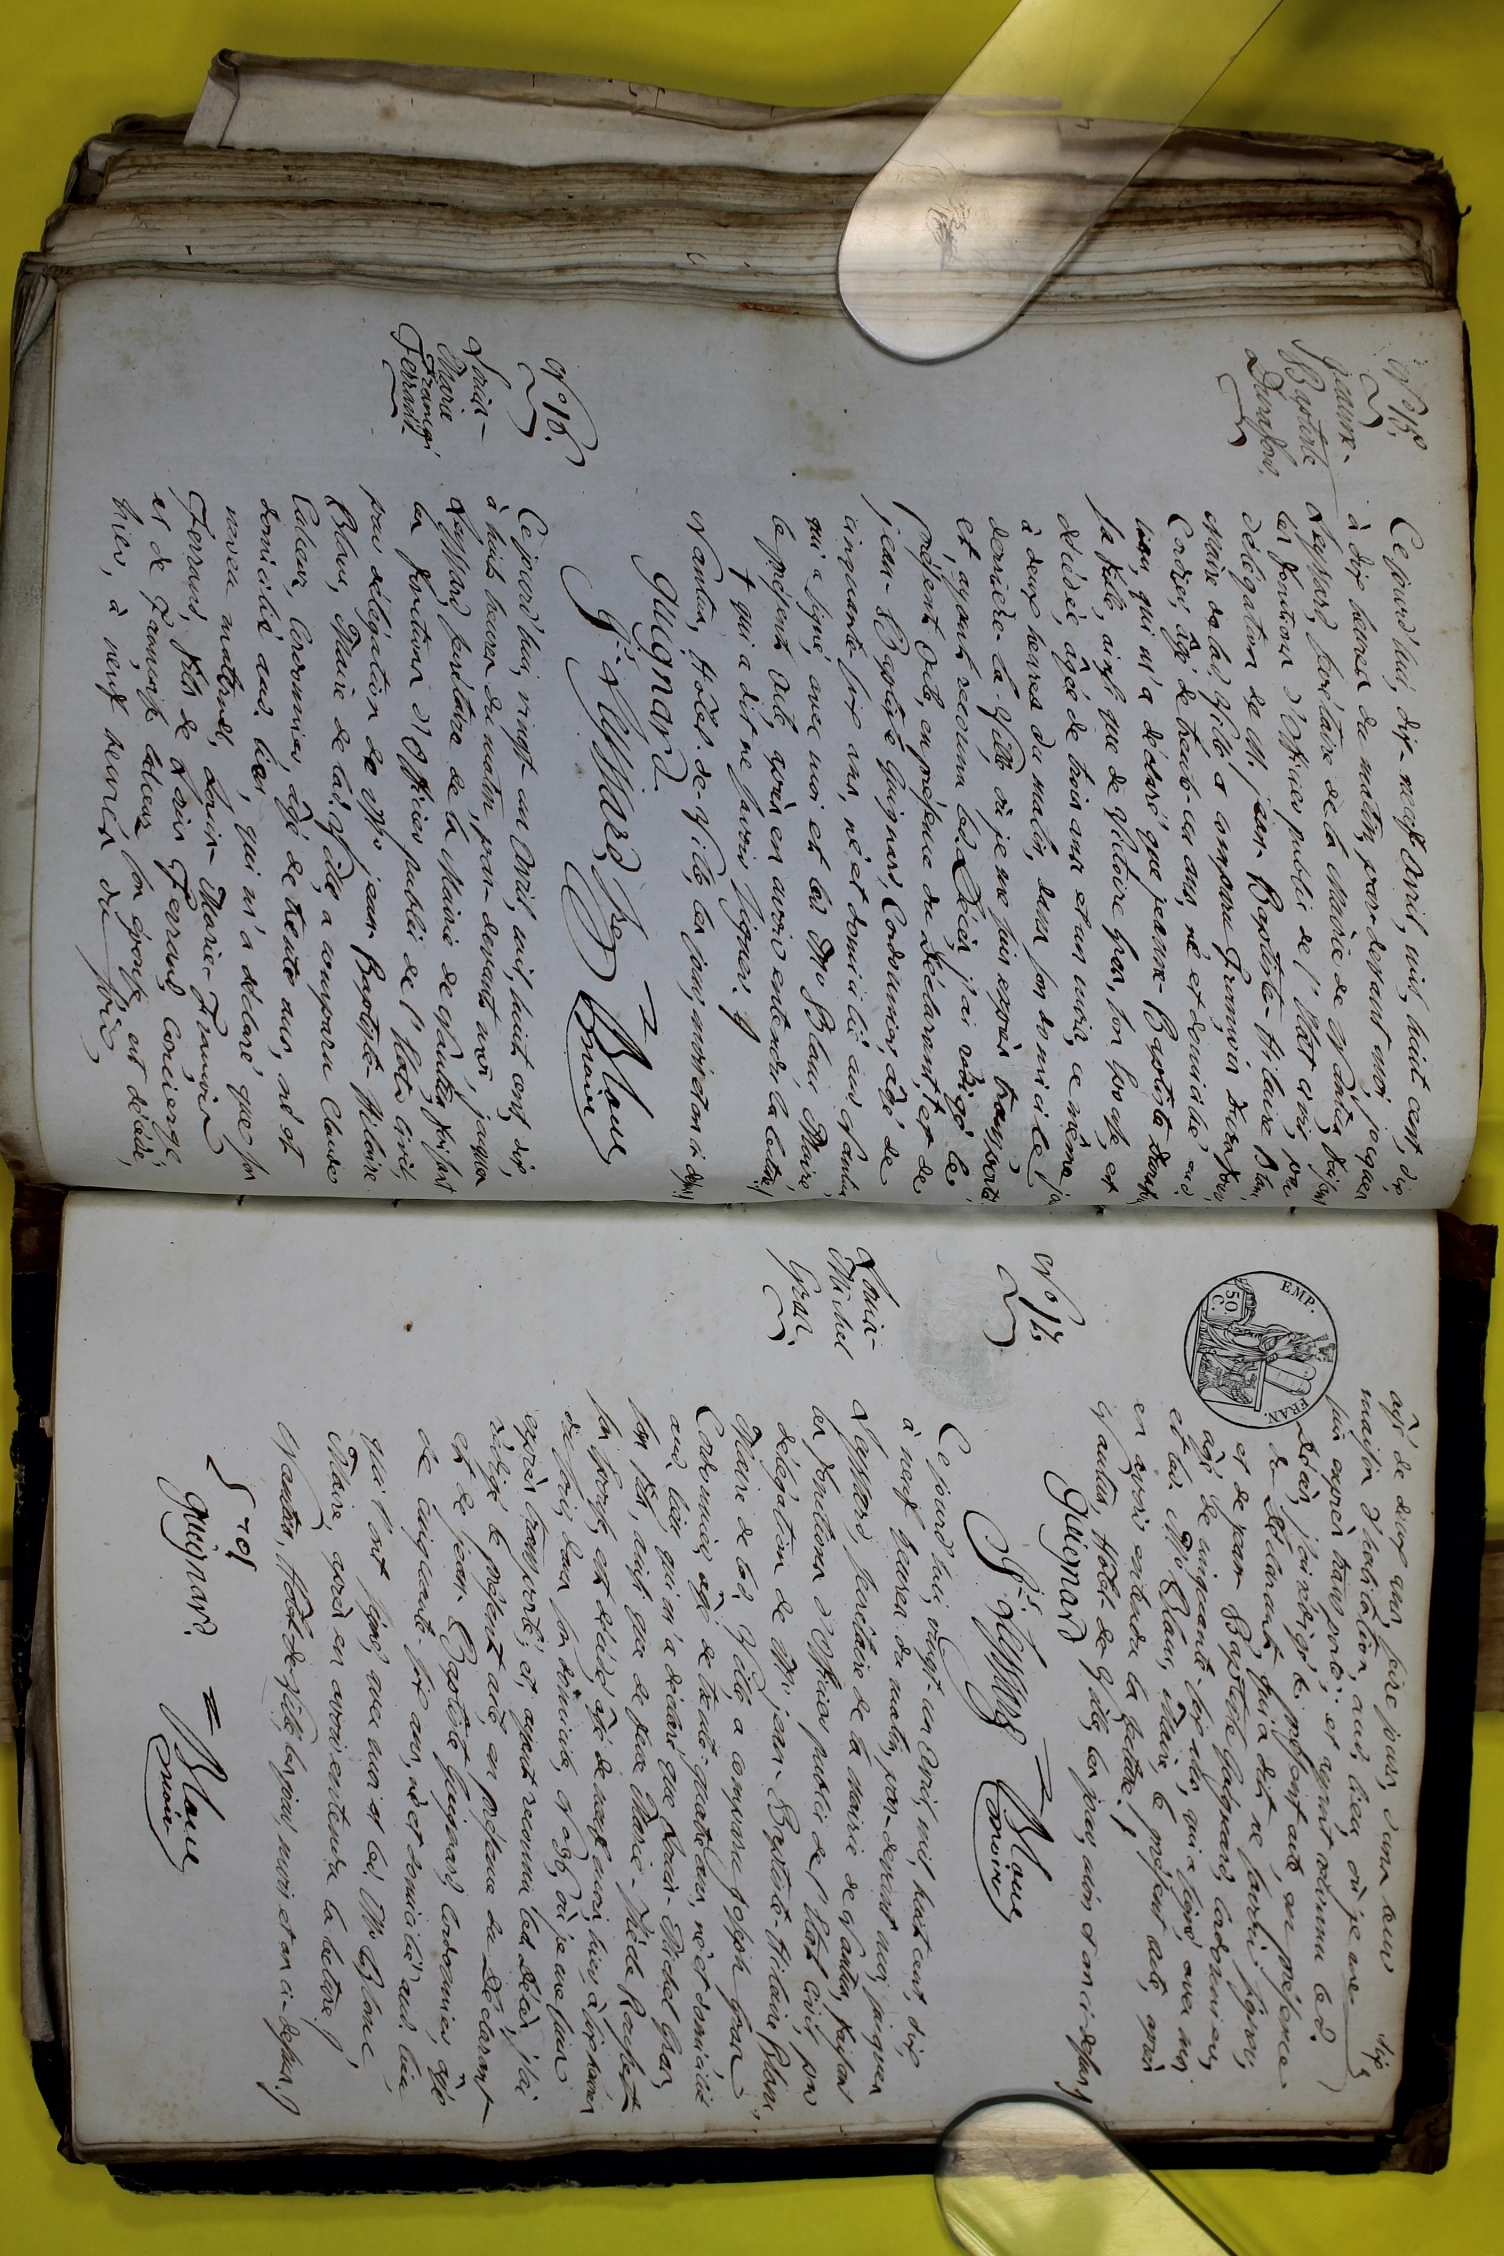 N.° 15.
Jeanne-
Baptiste
Durafour.
Ce jourd'hui, dix-neuf Avril, mil, huit cent, dix,
à dix heures du matin, par-devant moi, jacques
Leyssard, secrétaire de la Mairie de Nantua, faisant
les fonctions d'Officier public de l'État civil, par
délégation de Mr. jean-Baptiste-Hilaire Blanc
Maire de lad. Ville a comparu François Durafour,
Cordier, âgé de trente-un ans, né et domicilié aud.
lieu, qui m'a déclaré que jeanne-Baptiste Durafour
sa fille, ainsi que de Victoire Gras, son épouse, est
décédée, âgée de trois ans et un mois, ce même jour
à deux heures du matin, dans son domicile,
derrière-la-Ville où je me suis exprès transporté,
et, ayant reconnu led. Décès, j'ai rédigé le
présent Acte, en présence du Déclarant, et de
jean-Baptiste Guignard, Cordonnier, âgé de
cinquante-six ans, né et domicilié aud. Nantua
qui a signé, avec moi et led. Mr. Blanc Maire,
le présent Acte, après en avoir entendu la lecture./.
† qui a dit ne savoir signer./
Nantua, Hôtel-de-Ville, les jour, mois et an ci-dessus./.
guignard
Js. Leyssard, sre. Blanc
maire
N.° 16.
Louis-
Marie
François
Ferrand.
Ce jourd'hui, vingt-un Avril, mil, huit cent, dix,
à huit heures du matin, par-devant moi, jacques
Leyssard, secrétaire de la Mairie de Nantua, faisant
les fonctions d'Officier public de l'État civil,
par délégation de Mr. jean-Baptiste-Hilaire
Blanc, Maire de lad. Ville, a comparu Claude
Cordonnier, âgé de trente ans, né et
domicilié aud. lieu, qui m'a déclaré que son
neveu maternel, Louis-Marie-François
Ferrand, fils de Louis Ferrand, Concierge,
et de son épouse, est décédé,
hier, à neuf heures du soir,
âgé de deux ans, seize jours, dans leur
maison d'habitation, aud. lieu, où je me
suis exprès transporté; et, ayant reconnu led.
Décès, j'ai rédigé le présent acte, en présence
du Déclarant, qui a dit ne savoir signer,
et de jean-Baptiste Guignard, cordonnier,
âgé de cinquante-six ans, qui a signé avec moi
et led. Mr. Blanc, Maire, le présent acte, après
en avoir entendu la lecture./
Nantua, Hôtel-de-Ville, les jour, mois et an ci-dessus./.
guignard
Js. Leyssard Blanc
maire
EMP. FRAN.
50.
C.
N.° 17.
Louis-
Michel
Gras.
Ce jourd'hui, vingt-un Avril, mil, huit cent, dix,
à neuf heures du matin, par-devant moi, jacques
Leyssard, secrétaire de la mairie de Nantua, faisant
les fonctions d'Officier public de l'État civil, par
délégation de Mr. jean-Baptiste-Hilaire Blanc,
Maire de lad. Ville a comparu joseph Gras
Cordonnier, âgé de trente-quatre ans, né et domicilié
aud. lieu, qui m'a déclaré que Louis-Michel Gras,
son fils, ainsi que de Marie-
son épouse, est décédé, âgé de neuf mois, hier, à six heures
du soir, dans son domicile, N.° 96, où je me suis
exprès transporté; et, ayant reconnu led. Décès, j'ai
rédigé le présent acte, en présence du Déclarant
et de jean-Baptiste Guignard, Cordonnier, âgé
de cinquante-six ans, né et domicilié aud. lieu
qui l'ont signé, avec moi et led. Mr. Blanc,
Maire, après en avoir entendu la lecture./.
Nantua, Hôtel-de-Ville, les jour, mois et an ci-dessus./
guignard Blanc
maire